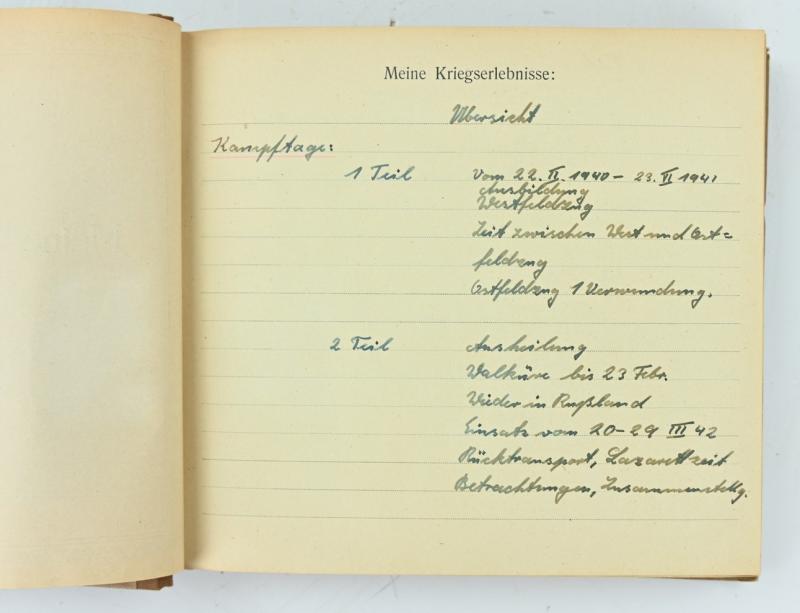 Meine Kriegserlebnisse:
Übersicht
Kampftage:
1 Teil Vom 22. II. 1940 – 23. II 1941
Ausbildung
Westfeldzug
Zeit zwischen West und Ost=
feldzug
Ostfeldzug 1 Verwundung.
2 Teil Ausheilung
Walküre bis 23 Febr.
Wieder in Rußland
Einsatz vom 20–29 III 42
Rücktransport, Lazarettzeit
Betrachtungen, Zusammenstellg.